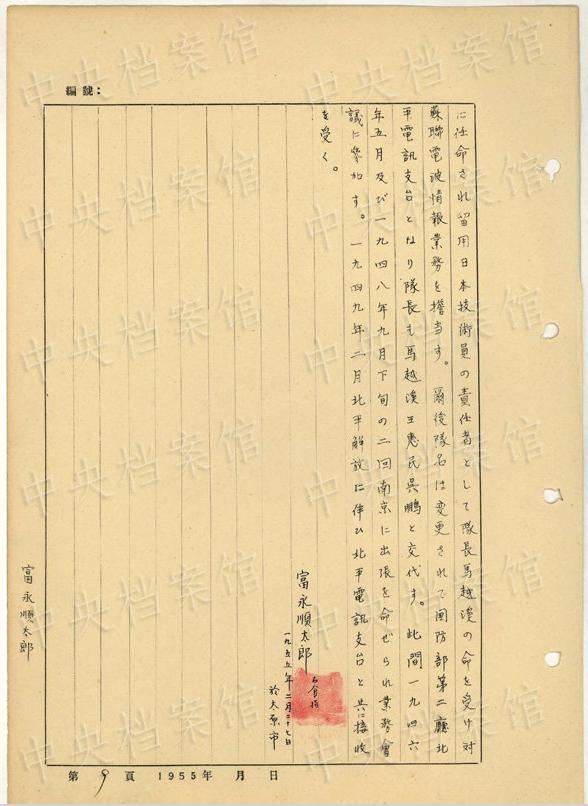 編號：
に任命され留用日本技術員の責任者として隊長馬越渓の命を受け対
蘇聯電波情報業務を擔当す。爾後隊名は変更されて国防部第二廳北
平電訊支台となり隊長も馬越渓王惠民呉鵬と交代す。此間一九四六
年五月及び一九四八年九月下旬の二回南京に出張を命ぜられ業務會
議に参加す。一九四九年二月北平解放に伴ひ北平電訊支台と共に接收
を受く。
富永順太郎
右食指
一九五五年二月二十七日
於太原市
富永順太郎
第 9 頁 1955年 月 日
中央档案馆